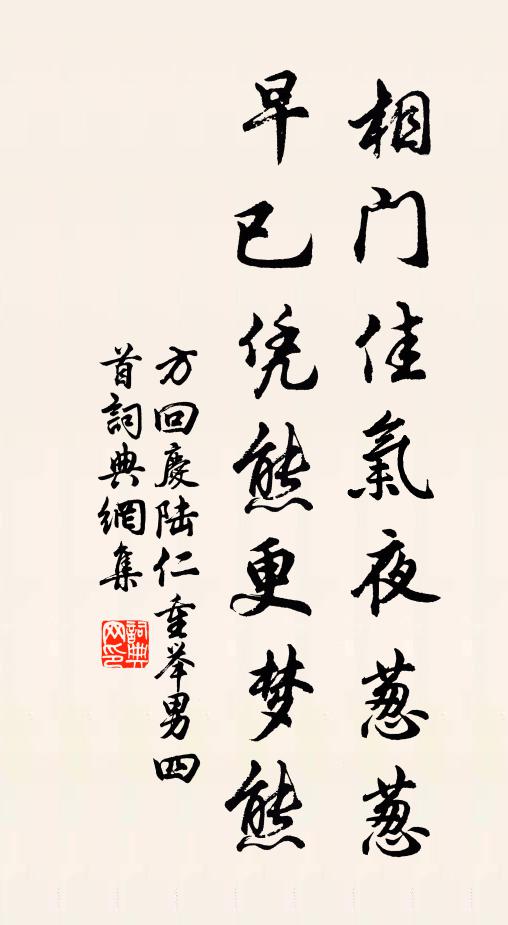 相门佳氣夜葱葱
早已凭熊更梦熊
方回慶陆仁重举男四
首詞典網集
詞典
网印